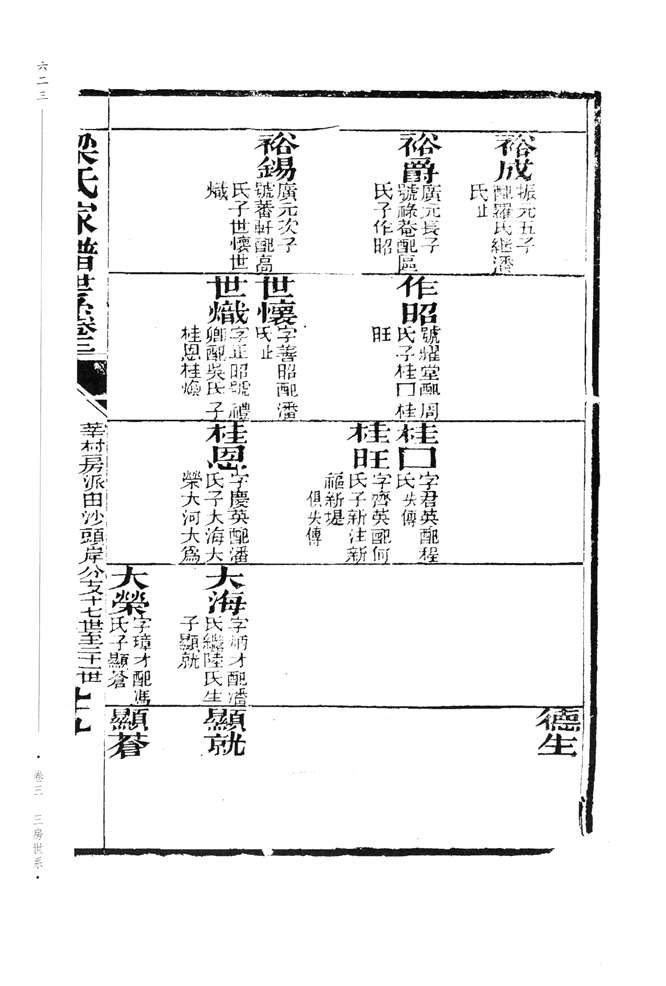 裕成
振元五子
配羅氏繼潘
氏止
裕爵
廣元長子
號祿菴配區
氏子作昭
裕錫
廣元次子
號蕃軒配高
氏子世懷世
熾
作昭
號耀堂配周
氏子桂口桂
旺
世懷
字善昭配潘
氏止
世熾
字正昭號禮
卿配吳氏子
桂恩桂煥
桂口
字君英配程
氏失傳
桂旺
字齊英配何
氏子新注新
福新堤
俱失傳
桂恩
字慶英配潘
氏子大海大
榮大河大爲
大海
字炳才配潘
氏繼陸氏生
子顯就
大榮
字璋才配馮
氏子顯蒼
德生
顯就
顯蒼
梁氏家譜世系卷三
莘村房派由沙頭岸分支十七世至二十一世
十九
六二三
卷三 三房世系